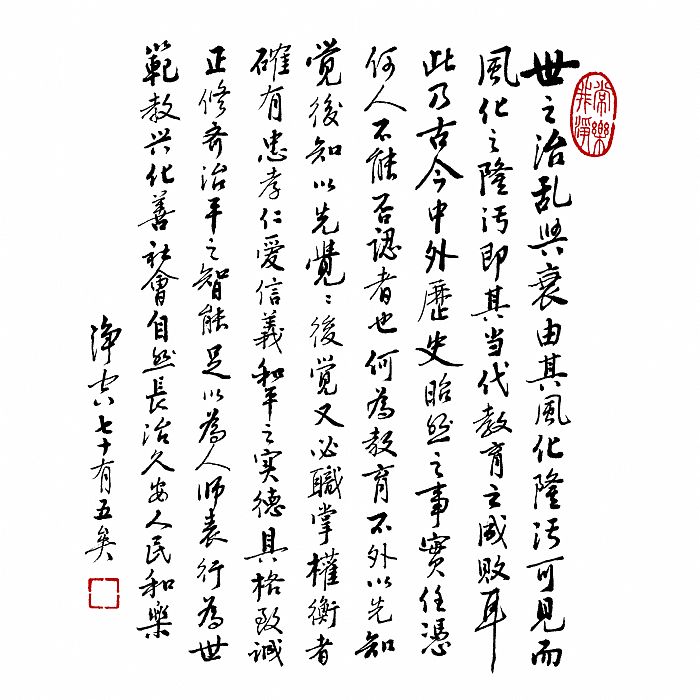 常樂
我淨
世之治乱興衰由其風化隆污可見而
風化之隆污即其当代教育之成敗耳
此乃古今中外歷史昭然之事實任憑
何人不能否認者也何為教育不外以先知
覚後知以先覺〻後覚又必職掌權衡者
確有忠孝仁愛信義和平之实德具格致誠
正修齐治平之智能足以為人师表行為世
範教兴化善社會自然長治久安人民和樂
淨空七十有五矣